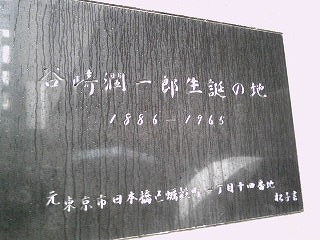 谷崎潤一郎生誕の地
1886―1965
元東京市日本橋区蛎殻町二丁目十四番地
松子書